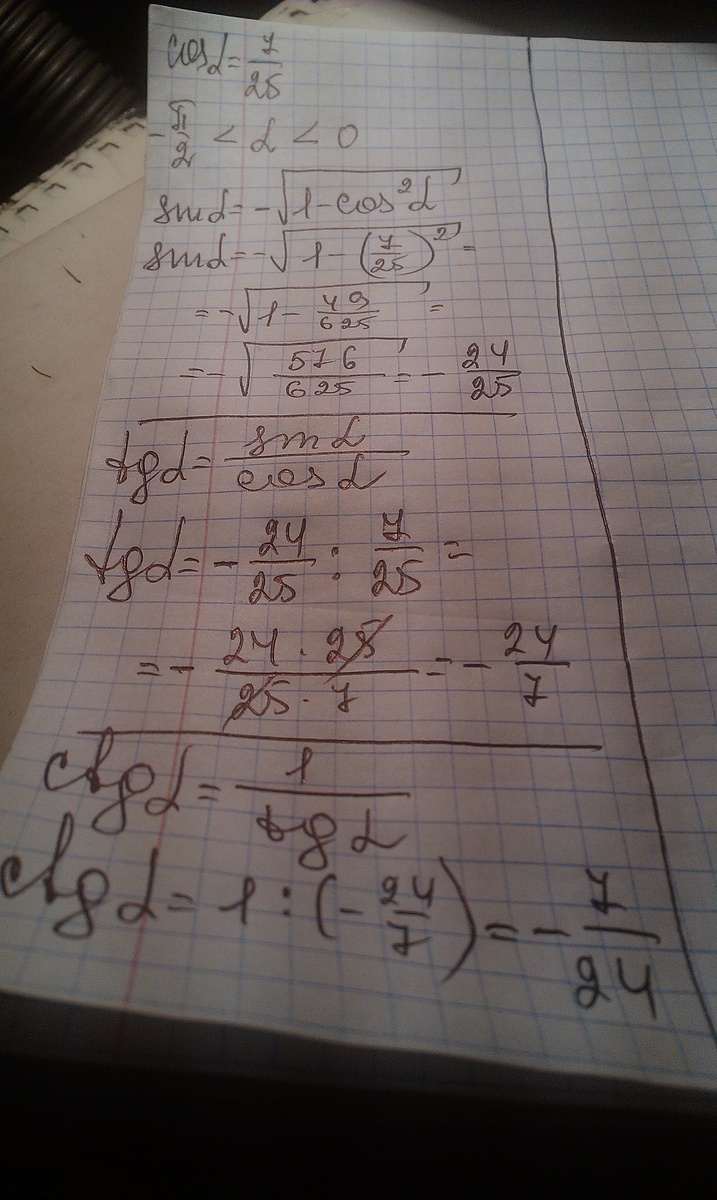 cosα = 7/25
-π/2 < α < 0
sinα = -√(1-cos²α)
sinα = -√(1-(7/25)²) =
= -√(1-49/625) =
= -√(576/625) = -24/25
tgα = sinα/cosα
tgα = -24/25 : 7/25 =
= -(24·25)/(25·7) = -24/7
ctgα = 1/tgα
ctgα = 1 : (-24/7) = -7/24